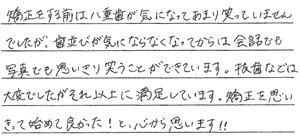 矯正をする前は八重歯が気になってあまり笑っていません
でしたが、歯並びが気にならなくなってからは会話でも
写真でも思いきり笑うことができています。抜歯などは
大変でしたがそれ以上に満足しています。矯正を思い
きって始めて良かった!と、心から思います!!